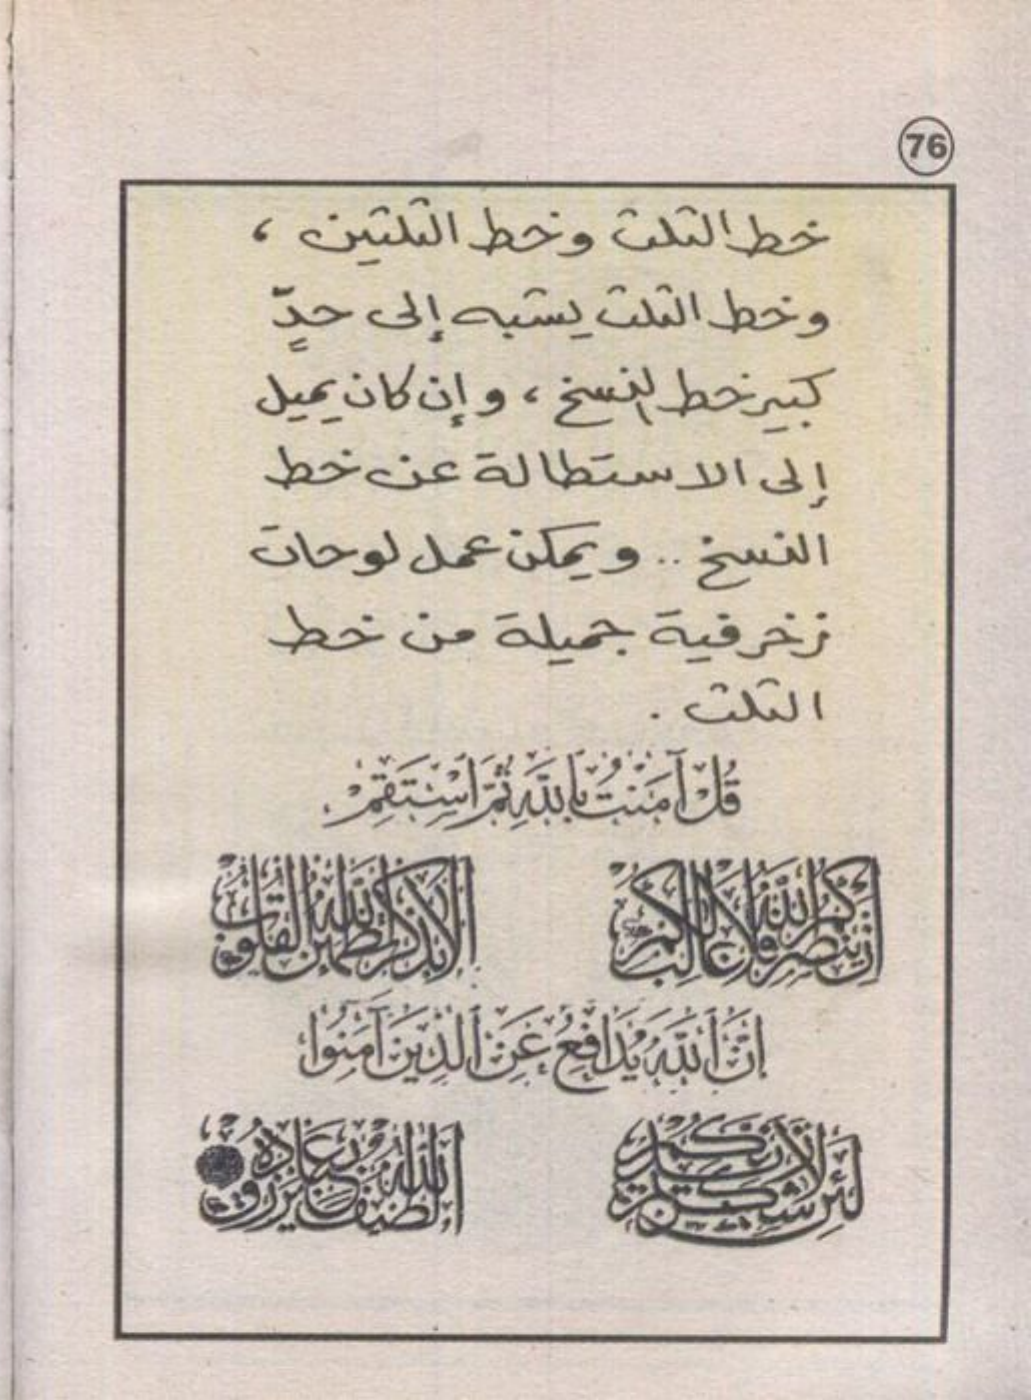 76
خط الثلث وخط الثلثين ،
وخط الثلث يشبه إلى حدٍّ
كبير خط النسخ ، وإن كان يميل
إلى الاستطالة عن خط
النسخ .. ويمكن عمل لوحات
زخرفية جميلة من خط
الثلث .
قُلْ آمَنْتُ بِاللَّهِ ثُمَّ اسْتَقِمْ
إن ينصركم الله فلا غالب لكم
ألا بذكر الله تطمئن القلوب
إِنَّ اللَّهَ يُدَافِعُ عَنِ الَّذِينَ آمَنُوا
لئن شكرتم لأزيدنكم
الله لطيف بعباده يرزق